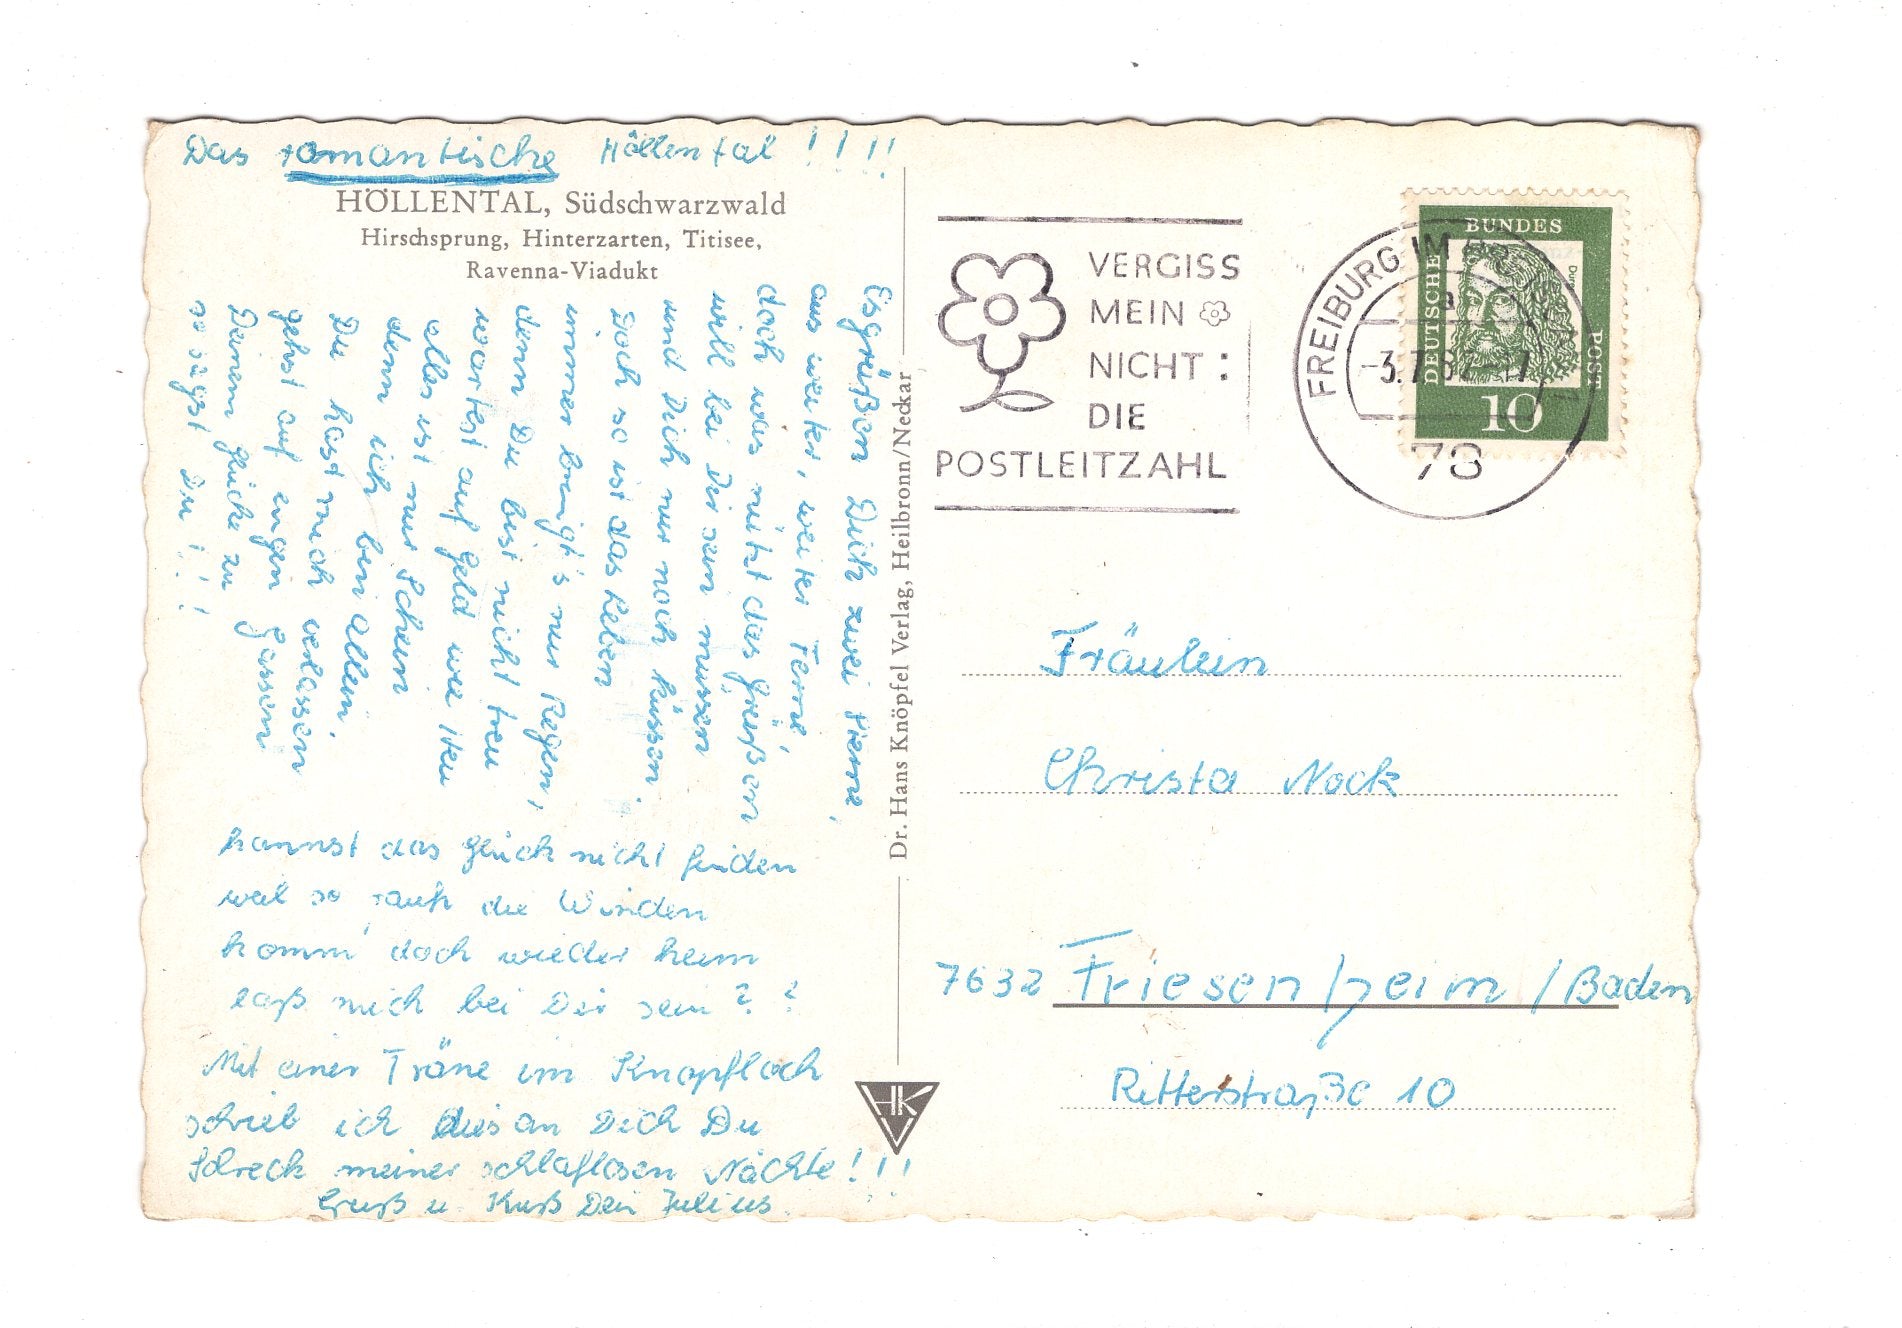 Das romantische Höllental !!!!
HÖLLENTAL, Südschwarzwald
Hirschsprung, Hinterzarten, Titisee,
Ravenna-Viadukt
Es grüßen Dich zwei Sterne,
aus weiter, weiter Ferne,
doch was nützt das Grüßen
will bei Dir sein müssen
und Dich nur noch küssen.
Doch so ist das Leben
immer bringt's nur Regen,
denn Du bist nicht treu
wartest auf Geld wie Heu
alles ist nur Schein
denn ich bin allein,
Du hast mich verlassen
gehst auf engen Gassen
Deinem Glücke zu
so sagst Du !!!
kannst das Glück nicht finden
weil so rauh die Winden
komm' doch wieder heim
laß mich bei Dir sein ? ?
Mit einer Träne im Knopfloch
schrieb ich dies an Dich Du
Schreck meiner schlaflosen Nächte!!!
Gruß u. Kuß Dein Julius.
Dr. Hans Knöpfel Verlag, Heilbronn/Neckar
HK
VERGISS
MEIN
NICHT:
DIE
POSTLEITZAHL
FREIBURG IM
a
-3.7.
78
DEUTSCHE
BUNDES
POST
Dürer
10
Fräulein
Christa Nock
7632 Friesenheim / Baden
Ritterstraße 10